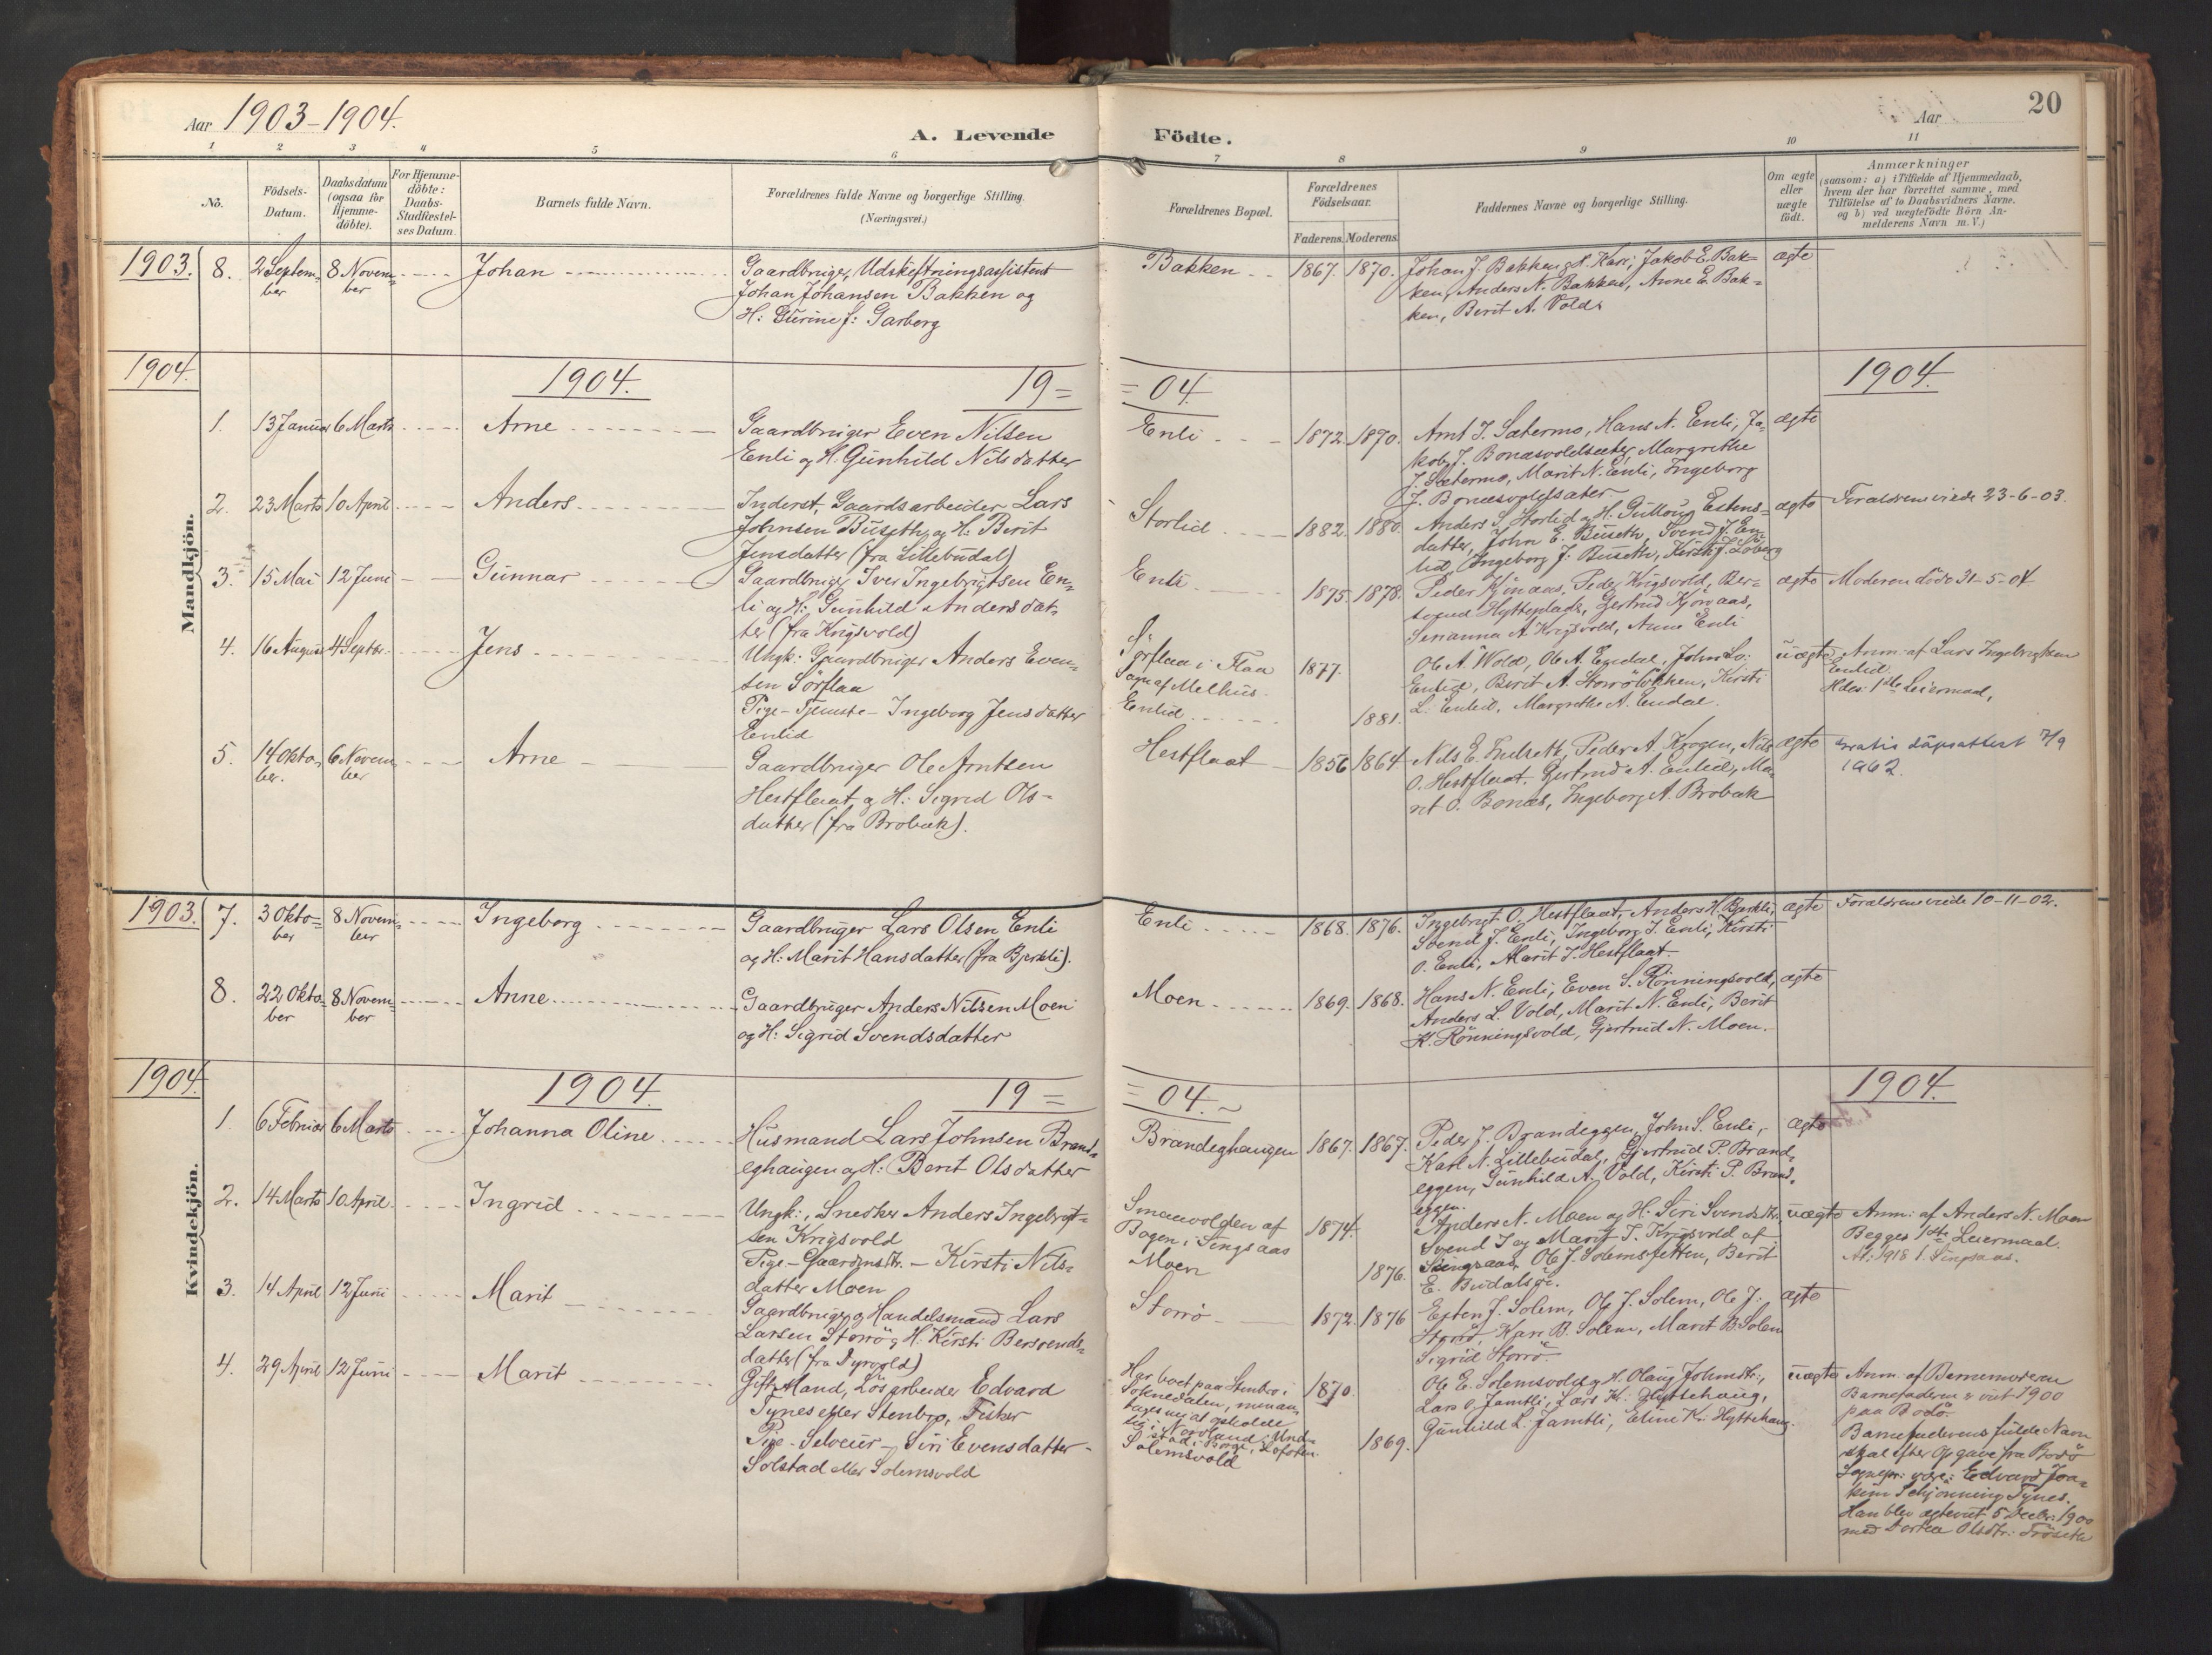 Aar 1903-1904.
A. Levende Födte.
Aar
20
1 2 3 4 5 6 7 8 9 10 11
No.
Födsels-Datum.
Daabsdatum (ogsaa for Hjemme-döbte).
For Hjemme-döbte: Daabs-Stadfæstel-ses Datum.
Barnets fulde Navn.
Forældrenes fulde Navne og borgerlige Stilling.
(Næringsvei.)
Forældrenes Bopæl.
Forældrenes Födselsaar.
Faderens. Moderens.
Faddernes Navne og borgerlige Stilling.
Om ægte eller uægte födt.
Anmærkninger
(saasom: a) i Tilfælde af Hjemmedaab,
hvem der har forrettet samme, med
Tilföielse af to Daabsvidners Navne.
og b) ved uægtefödte Börn An-
melderens Navn m. V.)
Mandkjön.
1903. 8. 2 Septem-ber 8 Novem-ber Johan
Gaardbruger, Udskiftningsassistent
Johan Johansen Bakken og
H: Gurine f: Garberg
Bakken 1867. 1870.
Johan J. Bakken og H. Kari, Jakob E. Bak-
ken, Anders N. Bakken, Anne E. Bak-
ken, Berit A. Vold.
ægte
1904. 1904. 19= =04. 1904.
1. 13 Januar 6 Marts Arne
Gaardbruger Even Nilsen
Enli og H. Gunhild Nilsdatter
Enli 1872. 1870.
Arnt J. Sætermo, Hans N. Enli, Ja-
kob J. Bonæsvoldsæter, Margrethe
J. Sætermo, Marit N. Enli, Ingeborg
J. Bonæsvoldsæter
ægte
2. 23 Marts 10 April Anders
Inderst, Gaardsarbeider Lars
Johnsen Buseth og H: Berit
Jensdatter (fra Lillebudal)
Storlid 1882. 1880.
Anders S. Storlid og H. Gullaug Estens-
datter, John E. Buseth, Svend J. En-
lid, Ingeborg J. Buseth, Kirsti J. Löberg
ægte
Forældrene viede 23-6-03.
3. 15 Mai 12 Juni Gunnar
Gaardbruger Iver Ingebrigtsen En-
li og H: Gunhild Andersdat-
ter (fra Krigsvold)
Enli 1875. 1878.
Peder Kjönaas, Peder Krigsvold, Ber-
svend Hytteplads, Gjertrud Kjönaas,
Senanna A. Krigsvold, Anne Enli
ægte
Moderen döde 31-5-04
4. 16 August 4 Septbr. Jens
Ungk: Gaardbruger Anders Even-
sen Sörflaa
Pige-Tjeneste- Ingeborg Jensdatter
Enlid
Sörflaa i Flaa
Sogn af Melhus.
Enlid
1877. 1881.
Ole A. Wold, Ole A. Endal, John Lo:
Enlid, Berit A. Storrölökken, Kirsti
L. Enlid, Margrethe A. Endal.
uægte
Anm: af Lars Ingebrigtsen
Enlid
Hdes: 1ste Leiermaal,
5. 14 Okto-ber. 6 Novem-ber Arne
Gaardbruger Ole Arntsen
Hestflaat og H: Sigrid Ols-
datter (fra Brobæk).
Hestflaat 1856 1864
Nils E. Indseth, Peder A. Krogen, Nils
O. Hestflaat, Gjertrud A. Enlid, Ma-
rit O. Bonæs, Ingeborg A. Brobæk
ægte
Gratis dåpsattest 7/9
1962.
Kvindekjön.
1903. 7. 3 Okto-ber 8 Novem-ber Ingeborg
Gaardbruger Lars Olsen Enli
og H: Marit Hansdatter (fra Bjerkli).
Enli 1868. 1876.
Ingebrigt O. Hestflaat, Anders H. Bjerkli,
Svend J. Enli, Ingeborg J. Enli, Kirsti
O. Enli, Marit J. Hestflaat.
ægte
Forældrene viede 10-11-02.
8. 22 Okto-ber 8 Novem-ber Anne
Gaardbruger Anders Nilsen Moen
og H: Sigrid Svendsdatter
Moen 1869. 1868.
Hans N. Enli, Even S. Rönningsvold,
Anders L. Vold, Marit N. Enli, Berit
K. Rönningsvold, Gjertrud N. Moen.
ægte
1904. 1904. 19= =04. 1904.
1. 6 Februar 6 Marts Johanna Oline
Husmand Lars Johnsen Brand-
eghaugen og H: Berit Olsdatter
Brandeghaugen 1867. 1867.
Peder J. Brandeggen, John S. Enli,
Karl N. Lillebudal, Gjertrud P. Brand-
eggen, Gunhild A. Vold, Kirsti P. Brand-
eggen.
ægte
2. 14 Marts 10 April. Ingrid
Ungk:, Snedker Anders Ingebrigt-
sen Krigsvold
Pige-Gaardmdtr. - Kirsti Nils-
datter Moen
Smaavolden af
Bogen i Singsaas
Moen
1874. 1876.
Anders N. Moen og H: Siri Svendsdtr.,
Svend J. og Marit J. Krigsvold af
Singsaas, Ole J. Solemsletten, Berit
E. Budalsöi.
uægte
Anm: af Anders N. Moen
Begges 1ste Leiermaal.
At: 1918 i Singsaas.
3. 14 April 12 Juni Marit
Gaardbruger og Handelsmand Lars
Larsen Storrö og H. Kirsti Bersvends-
datter (fra Dyrvold)
Storrö 1872. 1876
Esten J. Solem, Ole J. Solem, Ole J:
Storrö, Kari B. Solem, Marit B. Solem
Sigrid Storrö.
ægte
4. 29 April 12 Juni Marit
Gift Mand, Lösarbeider Edvard
Tynes eller Stenbro, Fisker
Pige - Selveier - Siri Evensdatter -
Solstad eller Solemsvold
Har boet paa Stenbro i
Soknedalen, men an-
tages nu at opholde
sig i Nordland i Und-
stad i Borge, Lofoten
Solemsvold
1870. 1869.
Ole E. Solemsvold og H. Olaug Johnsdtr.,
Lars O. Jamtli, Lars K. Hyttehaug,
Gunhild L. Jamtli, Eline K. Hyttehaug.
uægte
Anm: af Barnemoderen
Barnefaderen er viet 1900
paa Bodö.
Barnefaderens fulde Navn
skal efter Opgave fra Bodö
Sognepr. være: Edvard Joa-
kim Schjönning Tynes.
Han blev ægteviet 5 Decbr. 1900
med Dortea Olsdtr. Fröseth